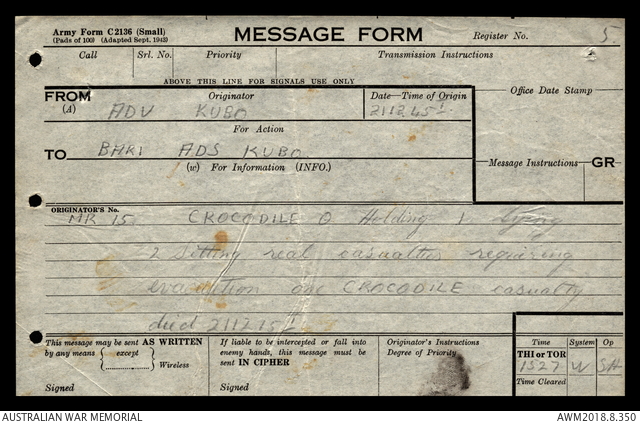 Army Form C2136 (Small)
(Pads of 100) (Adapted Sept. 1943)
MESSAGE FORM
Register No. 5
Call Srl. No. Priority Transmission Instructions
ABOVE THIS LINE FOR SIGNALS USE ONLY
FROM Originator Date—Time of Origin Office Date Stamp
(A) ADV KUBO
For Action
TO BAKI ADS KUBO
(w) For Information (INFO.) Message Instructions GR
ORIGINATOR'S No.
MR 15 CROCODILE O Holding 1 lying
2 sitting real casualties requiring
evacuation one CROCODILE casualty
died
This message may be sent AS WRITTEN
by any means { except
Wireless
Signed
If liable to be intercepted or fall into
enemy hands, this message must be
sent IN CIPHER
Signed
Originator's Instructions
Degree of Priority
Time System Op
THI or TOR
1527 W SH
Time Cleared
AUSTRALIAN WAR MEMORIAL AWM2018.8.350